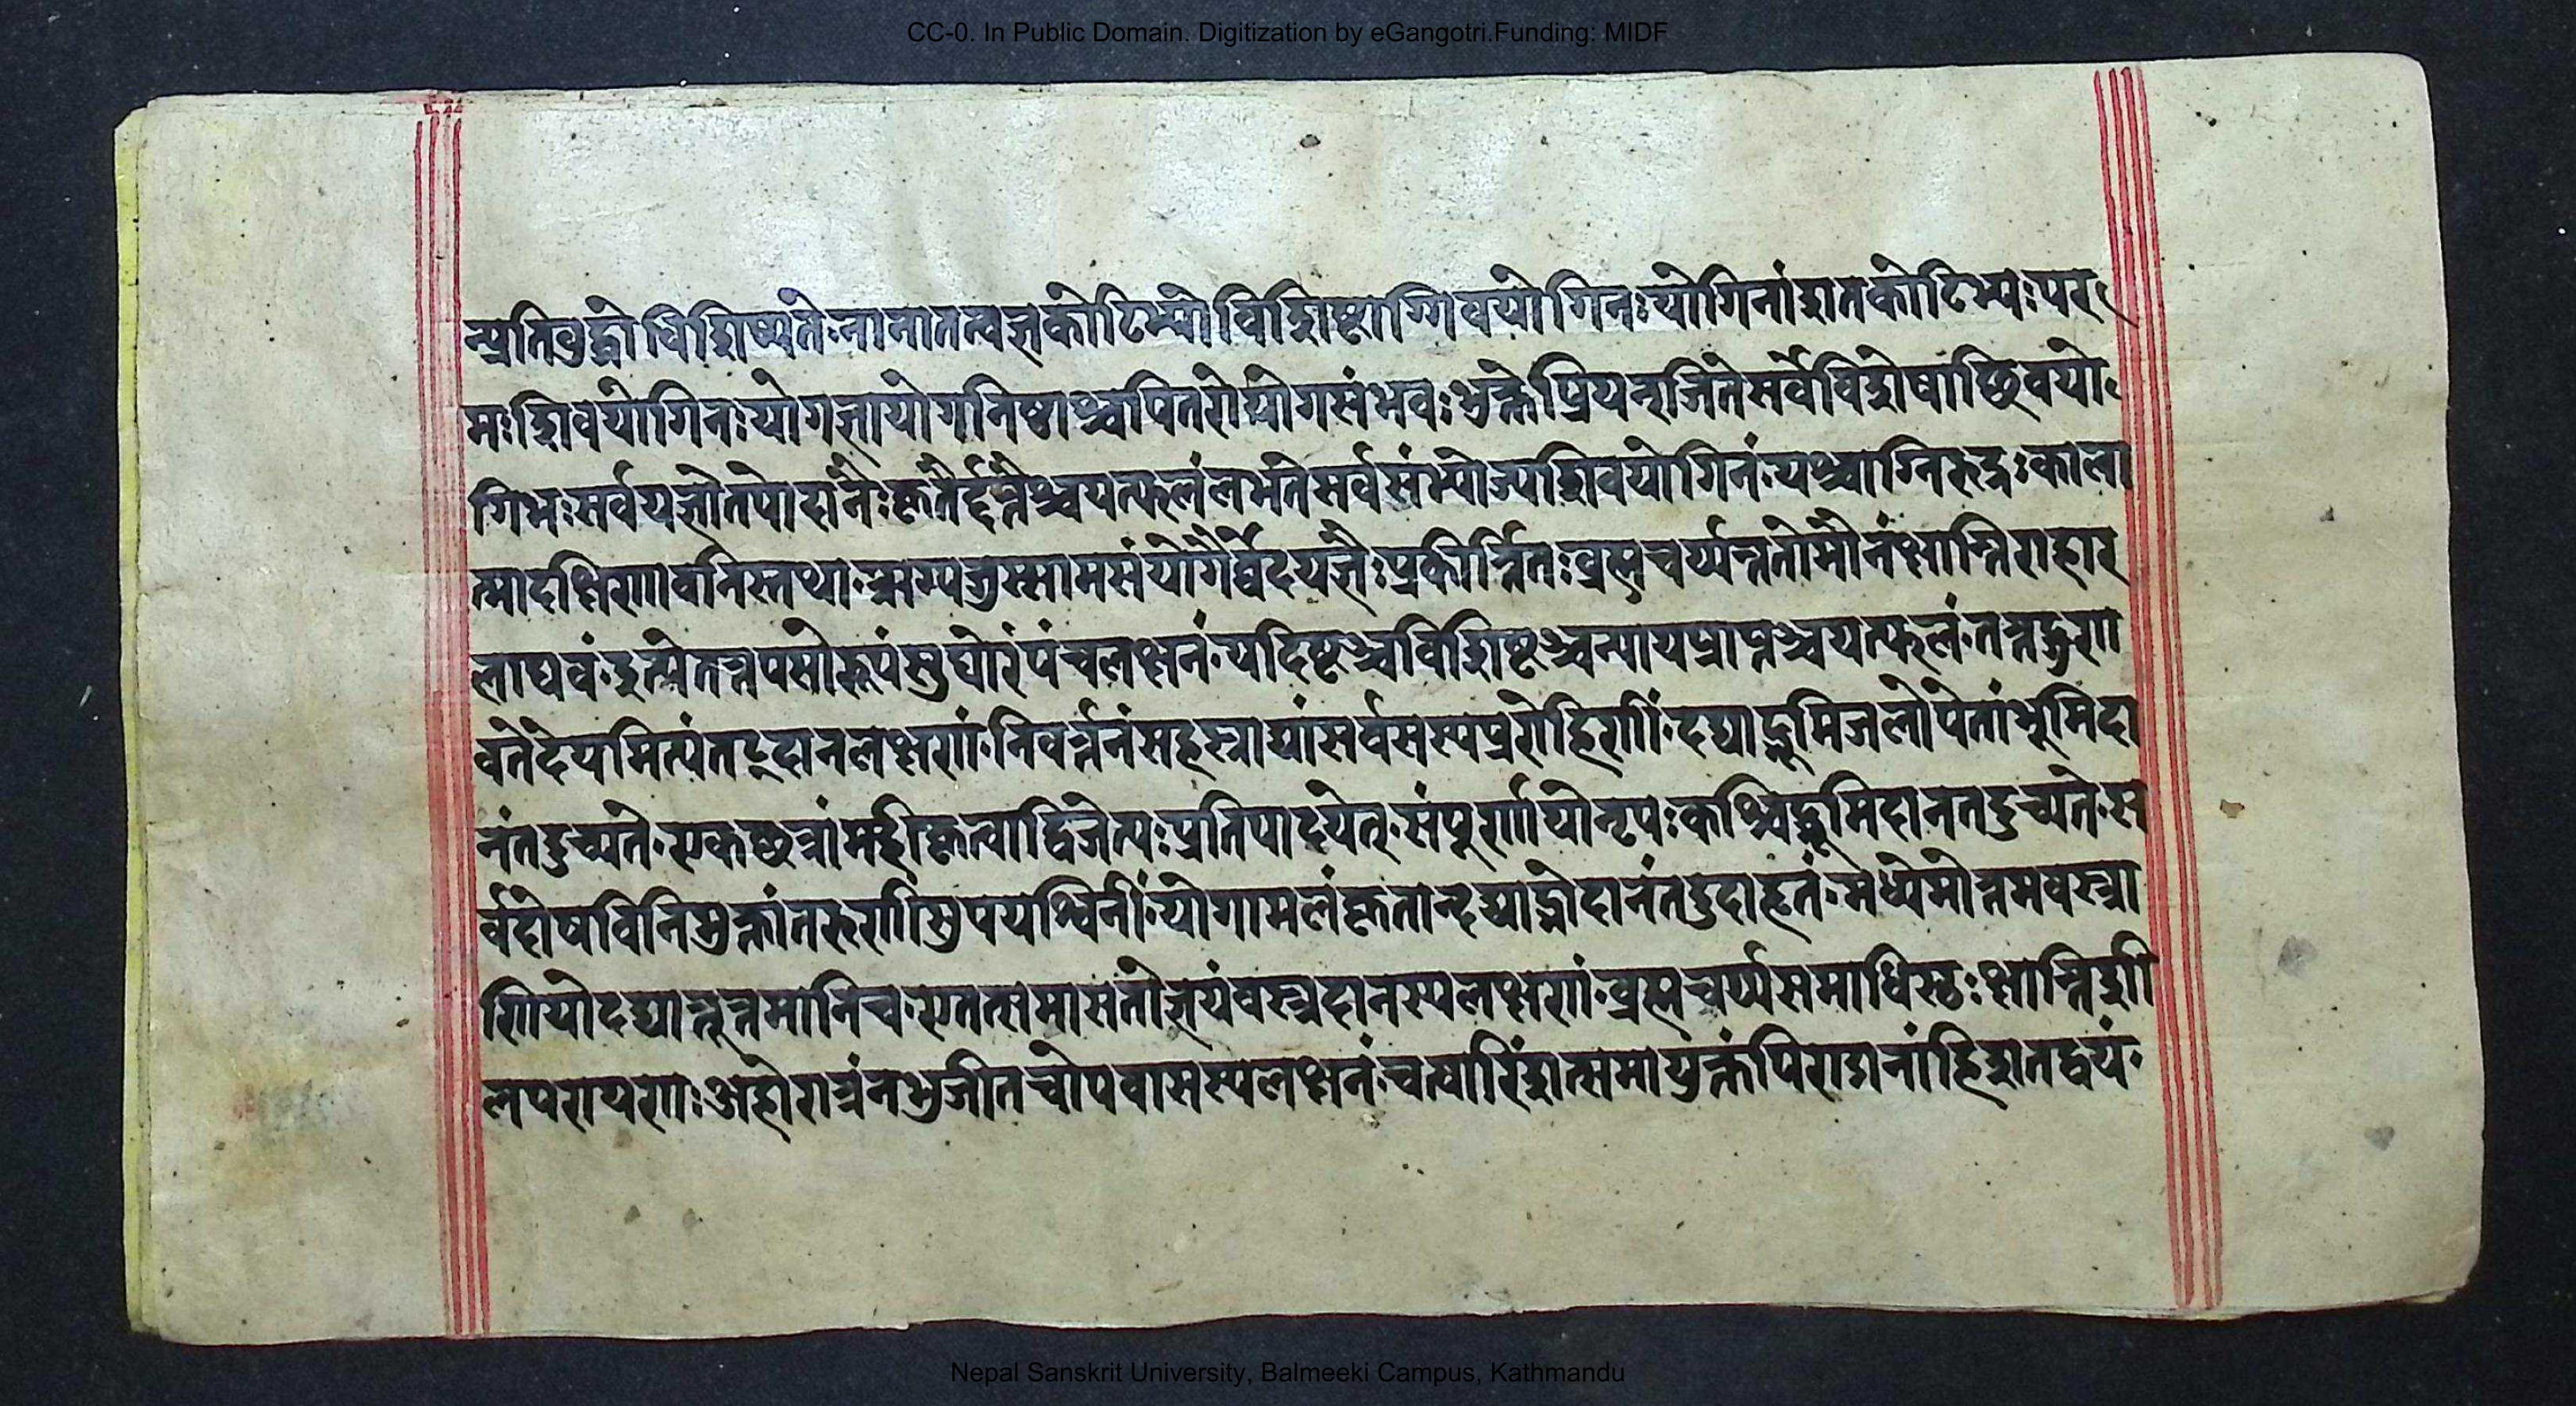 CC-0. In Public Domain. Digitization by eGangotri.Funding: MIDF
न्प्रतिवुद्धोविशिष्यते॰नानातत्वज्ञकोटिभ्योविशिष्टाग्शिवयोगिनः॰योगिनांशतकोटिभ्यः॰पर
मः॰शिवयोगिनः॰योगज्ञायोगनिष्ठाश्चपितरोयोगसंभवः॰भुक्तेप्रियन्रजितेसर्वेविशेषाच्छिवयो
गिभः॰सर्वयज्ञौतपोदानैः॰कृतैर्द्दत्तैश्चयत्फलंलभतेसर्वसंभ्योज्यशिवयोगिनं॰यश्चाग्निरुद्रः॰काला
त्मादक्षिणावनिस्तथा॰ऋग्यजुस्सामसंयोगैर्व्वेदयज्ञैः॰प्रकीर्त्तितः॰व्रह्मचर्य्यन्नतोमौनंक्षान्तिराहार
लाघवं॰इत्येतत्तपसोरूपंसुघोरंपंचलक्षनं॰यदिष्टञ्चविशिष्टञ्चन्यायप्राप्तञ्चयत्फलं॰तत्तद्गुणा
वतेदेयमित्येतद्दानलक्षणां॰निवर्त्तनंसहस्त्राद्यांसर्वसस्यप्ररोहिणीं॰दद्याद्भूमिजलोपेतांभूमिदा
नंतदुच्यते॰एकछत्रांमहीकृत्वाद्विजेत्यः॰प्रतिपादयेत्॰संपूर्णायोनृपः॰कश्चिद्भूमिदानतदुच्यते॰स
र्वदोषविनिभुक्तांतरुणीसुपयश्विनीं॰योगामलंकृतान्दद्याद्गोदानंतदुदाहृतं॰मध्येमोत्तमवस्त्रा
णियोदद्यान्नूत्नमानिच॰एतत्समासतोज्ञेयंवस्त्रदानस्यलक्षणां॰व्रह्मचर्य्यसमाधिस्ठः॰क्षान्तिशी
लपरायणाः॰अहोरात्रंनभुजीतचोपवासस्यलक्षनं॰चत्वारिंशत्समायुक्तंपिराडानांहिशतद्वयं॰
Nepal Sanskrit University, Balmeeki Campus, Kathmandu